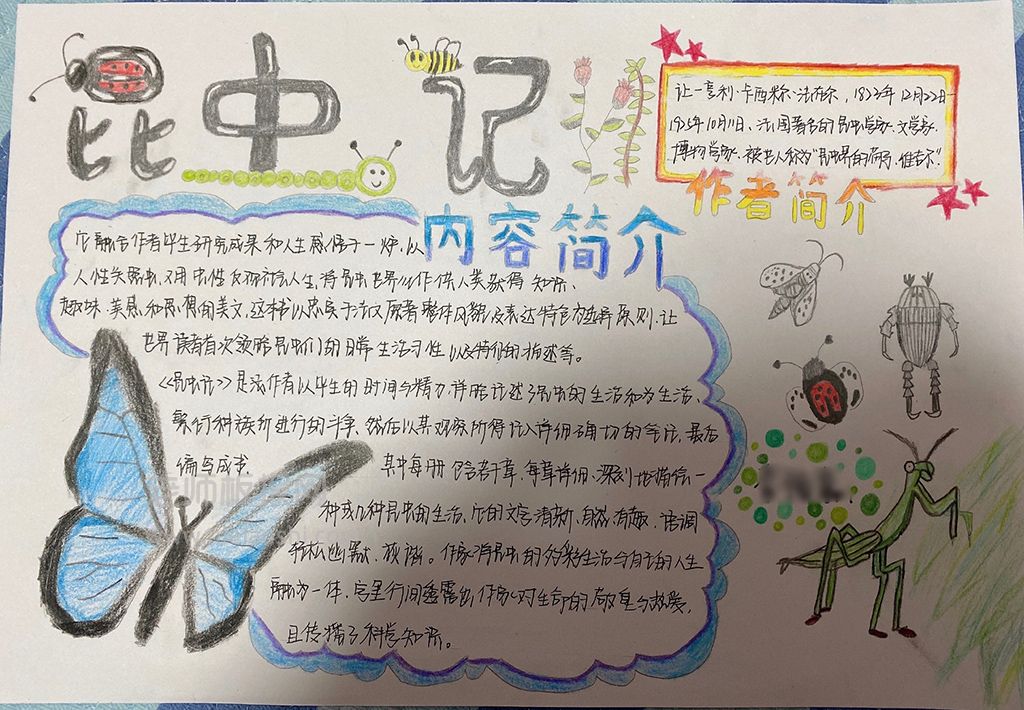 昆虫记
让-亨利·卡西米尔·法布尔，1823年12月22日-
1925年10月11日，法国著名的昆虫学家、文学家、
博物学家，被世人称为“昆虫界的荷马·维吉尔”
作者简介
内容简介
它融合作者毕生研究成果和人生感悟于一炉，以
人性关照虫，又用虫性反观社会人生，将昆虫世界化作供人类获得知识、
趣味、美感和思想的美文，这本书以忠实于法文原著整体风貌及表达特色为选择原则，让
世界读者首次领略昆虫们的日常生活习性以及特征的描述等。
《昆虫记》是法作者以毕生的时间与精力，详胎记述了昆虫的生活和为生活、
繁衍种族所进行的斗争，然后以其观察所得记入详细确切的笔记，最后
编写成书
其中每册包含若干章，每章详细、深刻地描绘一
种或几种昆虫的生活，他的文字清新、自然有趣，语调
轻松幽默、诙谐。作家将昆虫的多彩生活与自己的人生
融为一体，字里行间透露出作家对生命的敬皇与热爱，
且传播了科学知识。